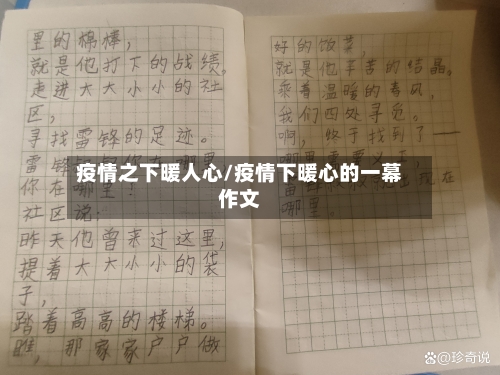 里的棉棒，
就是他打下的战绩。
走进大大小小的社
区，
寻找雷锋的足迹。
雷锋
你在哪里？
社区说：
昨天他曾来过这里，
提着大大小小的袋
子，
踏着高高的楼梯。
瞧，那家家户户做
好的饭菜，
就是他辛苦的结晶。
乘着温暖的春风，
我们四处寻觅。
啊，终于找到了——
在
哪里
疫情之下暖人心/疫情下暖心的一幕
作文
@珍奇说